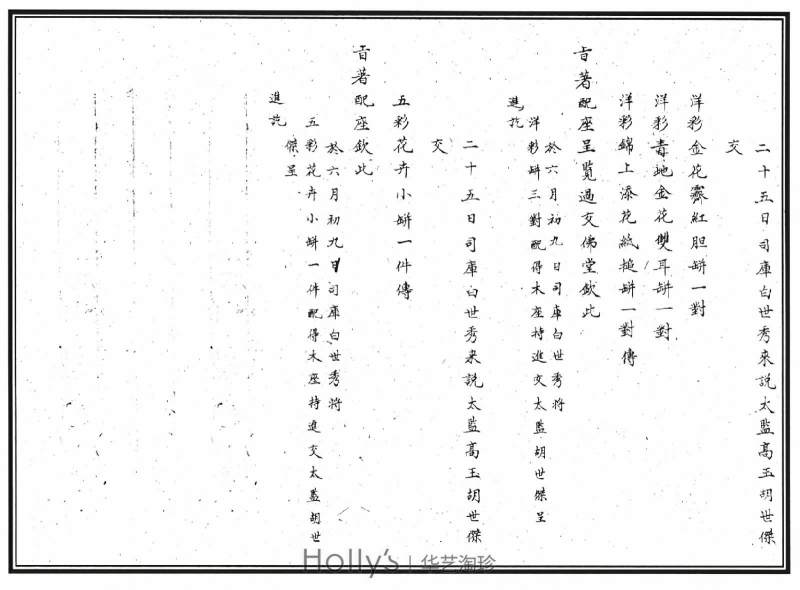 二十五日司庫白世秀來說太監高玉胡世傑
交
洋彩金花霽紅胆缾一對
洋彩青地金花雙耳缾一對
洋彩錦上添花紙搥缾一對傳
旨著配座呈覽過交佛堂欽此
於六月初九日司庫白世秀將
洋彩缾三對配得木座持進交太監胡世傑呈
進訖
二十五日司庫白世秀來說太監高玉胡世傑
交
五彩花卉小缾一件傳
旨著配座欽此
於六月初九日司庫白世秀將
五彩花卉小缾一件配得木座持進交太監胡世
傑呈
進訖
Holly's | 华艺淘珍